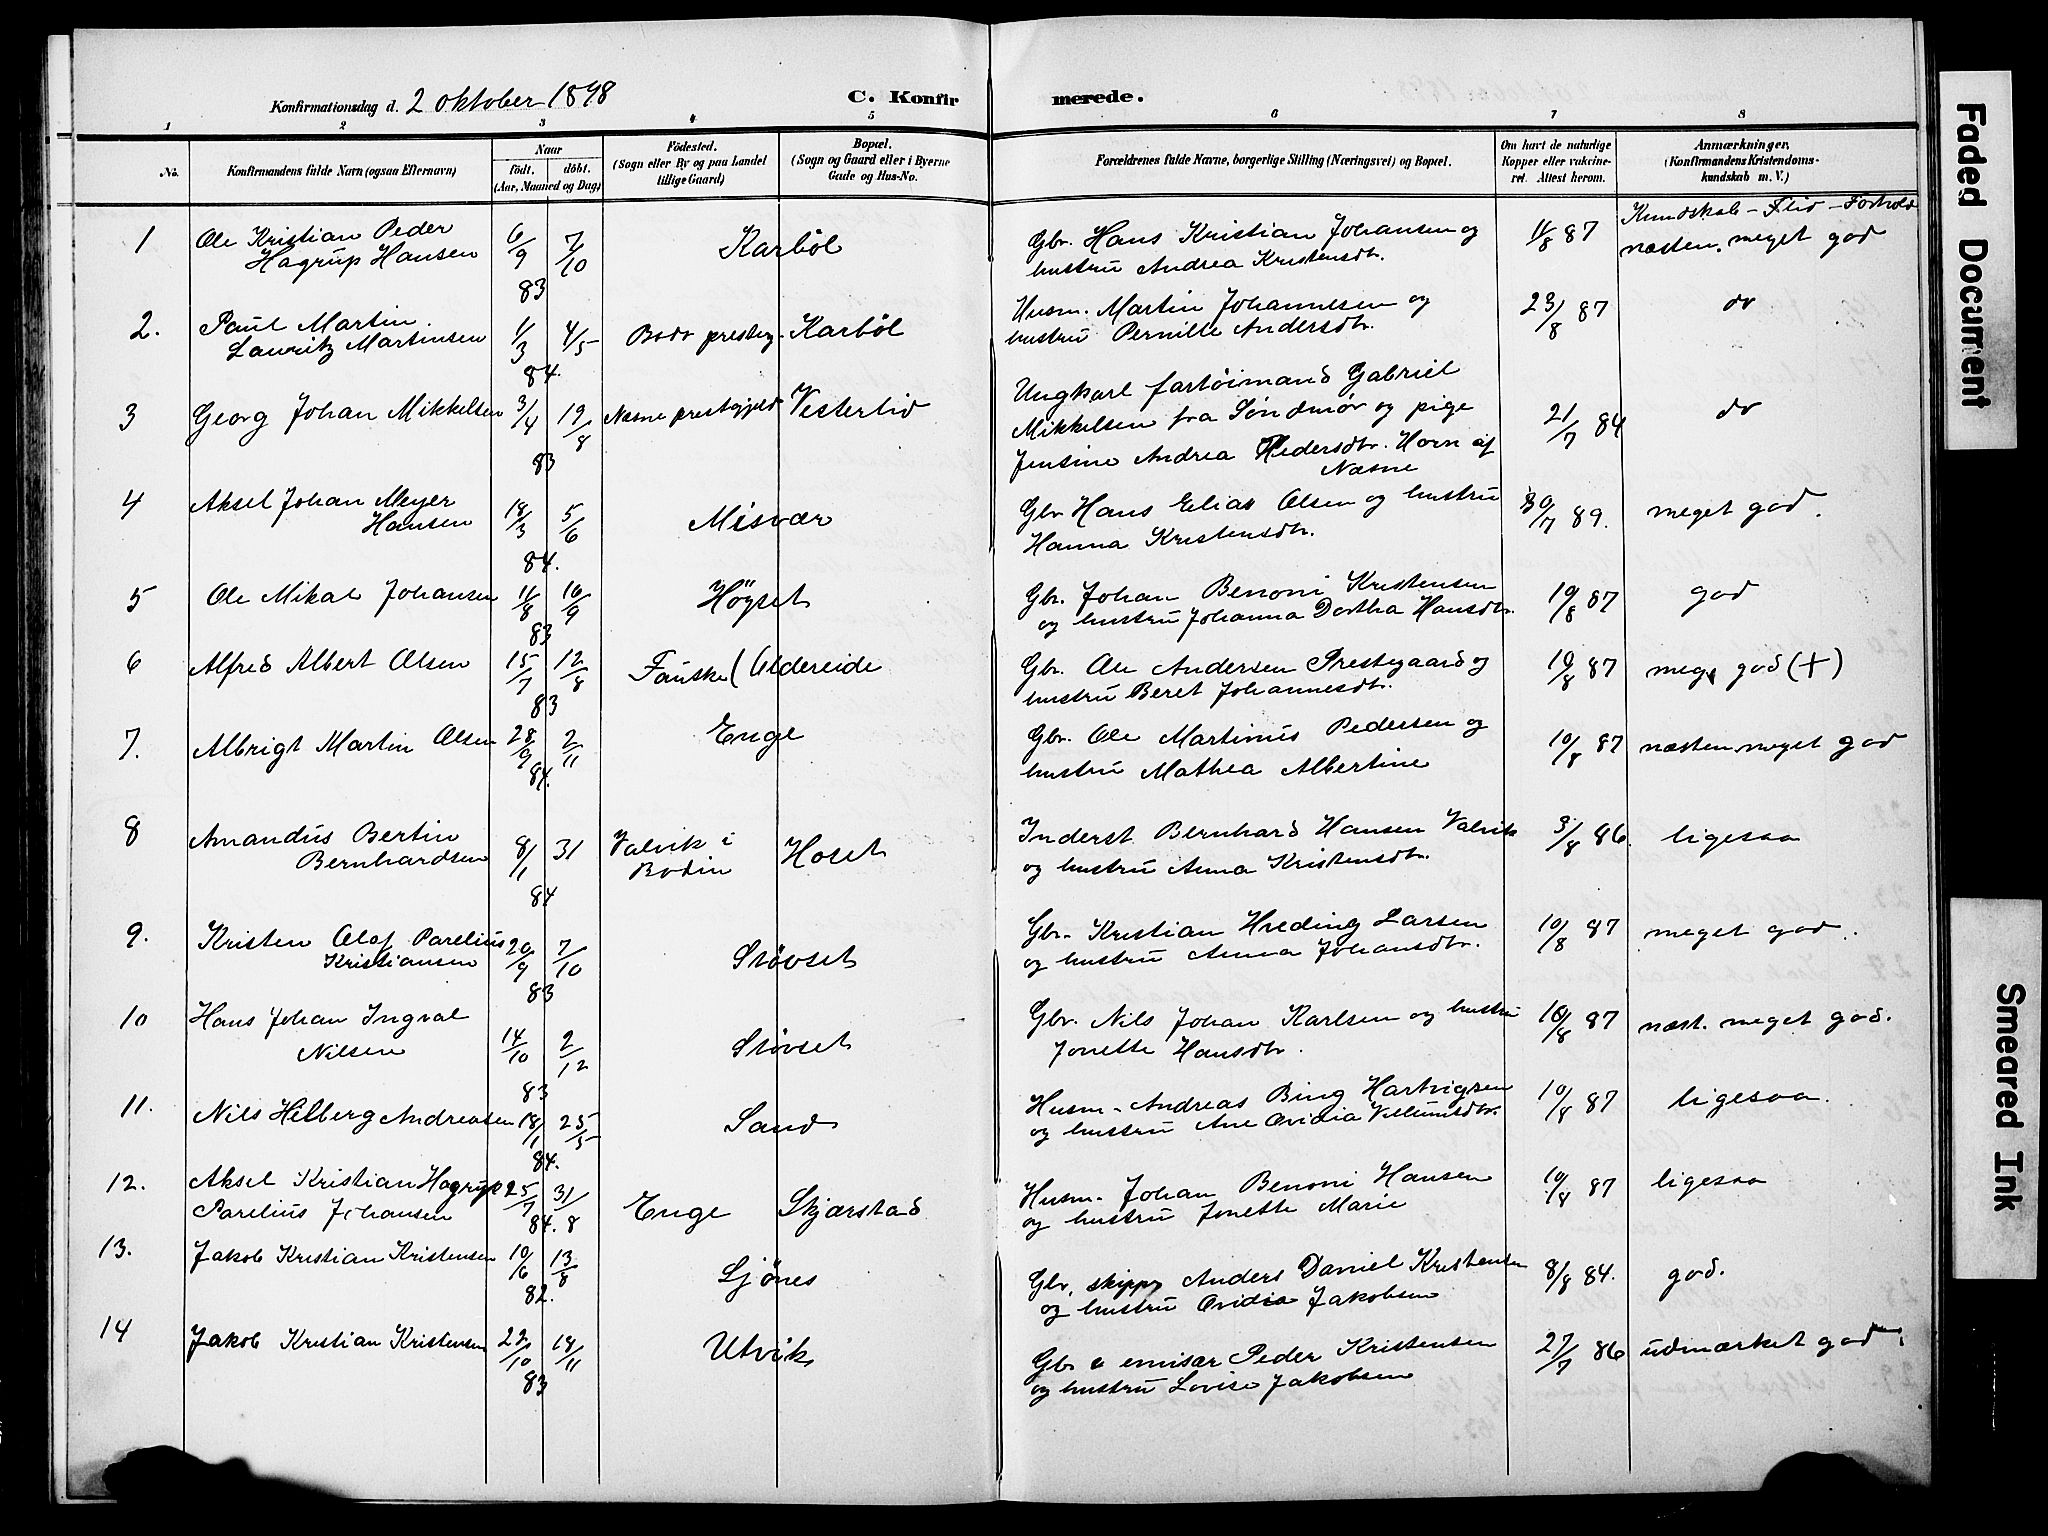 Konfirmationsdag d. 2 oktober 1898
C. Konfirmerede.
1 2 3 4 5 6 7 8
No. Konfirmandens fulde Navn (ogsaa Efternavn) Naar födt. döbt. (Aar, Maaned og Dag) Födested. (Sogn eller By og paa Landet tillige Gaard) Bopæl. (Sogn og Gaard eller i Byerne Gade og Hus-No. Forældrenes fulde Navne, borgerlige Stilling (Næringsvei) og Bopæl. Om havt de naturlige Kopper eller vakcineret. Attest herom. Anmærkninger. (Konfirmandens Kristendomskundskab m. V.)
Kundskab - Flid - Forhold
1 Ole Kristian Peder Hagrup Hansen 6/9 83 7/10 Karbøl Gbr. Hans Kristian Johansen og hustru Andrea Kristensdtr. 11/8 87 næsten meget god
2. Paul Martin Lauritz Martinsen 1/3 84. 4/5 Bodø presteg. Karbøl Husm. Martin Johannesen og hustru Pernille Andersdtr. 23/8 87 do
3 Georg Johan Mikkelsen 3/4 83 19/8 Næsne prestegjeld Vestertid Ungkarl fartøimand Gabriel Mikkelsen fra Søndmør og pige Jensine Andrea Pedersdtr. Horn af Næsne 21/7 84 do
4 Aksel Johan Meyer Hansen 18/3 84. 5/6 Misvær Gbr Hans Elias Olsen og hustru Hanna Kristensdtr. 30/7 89. meget god.
5 Ole Mikal Johansen 11/8 83 16/9 Høgset Gbr. Johan Benoni Kristensen og hustru Johanna Dortha Hansdtr. 19/8 87 god
6 Alfred Albert Olsen 15/7 83 12/8 Fauske (Aldereide Gbr. Ole Andersen Prestegaard og hustru Beret Johannesdtr. 10/8 87 meg. god (+)
7. Albrigt Martin Olsen 28/9 84. 2/11 Enge Gbr. Ole Martinus Pedersen og hustru Mathea Albertine 10/8 87 næsten meget god
8 Amandus Bertin Bernhardsen 8/1 84 31 Valvik i Bodin Hoset Inderst Bernhard Hansen Valvik og hustru Anna Kristensdtr. 3/8 86. ligesaa
9. Kristen Olaf Parelius Kristiansen 20/9 83 7/10 Støvset Gbr. Kristian Hreding Larsen og hustru Anna Johansdtr. 10/8 87 meget god.
10 Hans Johan Ingval Nilsen 14/10 83 2/12 Støvset Gbr. Nils Johan Karlsen og hustru Jonette Hansdtr. 10/8 87 næst. meget god.
11. Nils Hilberg Andreasen 18/1 84. 25/5 Sand Husm. Andreas Bing Hartvigsen og hustru Ane Ovidia Villumsdtr. 10/8 87 ligesaa.
12. Aksel Kristian Hagrup Parelius Johansen 25/7 84. 31/8 Enge Skjærstad Husm. Johan Benoni Hansen og hustru Jonette Marie 10/8 87 ligesaa
13. Jakob Kristian Kristensen 10/6 82. 13/8 Ljønes Gbr, skipper Anders Daniel Kristensen og hustru Ovidia Jakobsen 8/8 84. god.
14 Jakob Kristian Kristensen 22/10 83 18/11 Utvik Gbr & emisær Peder Kristensen og hustru Lovise Jakobsen 27/7 86 udmærket god.
Faded Document
Smeared Ink